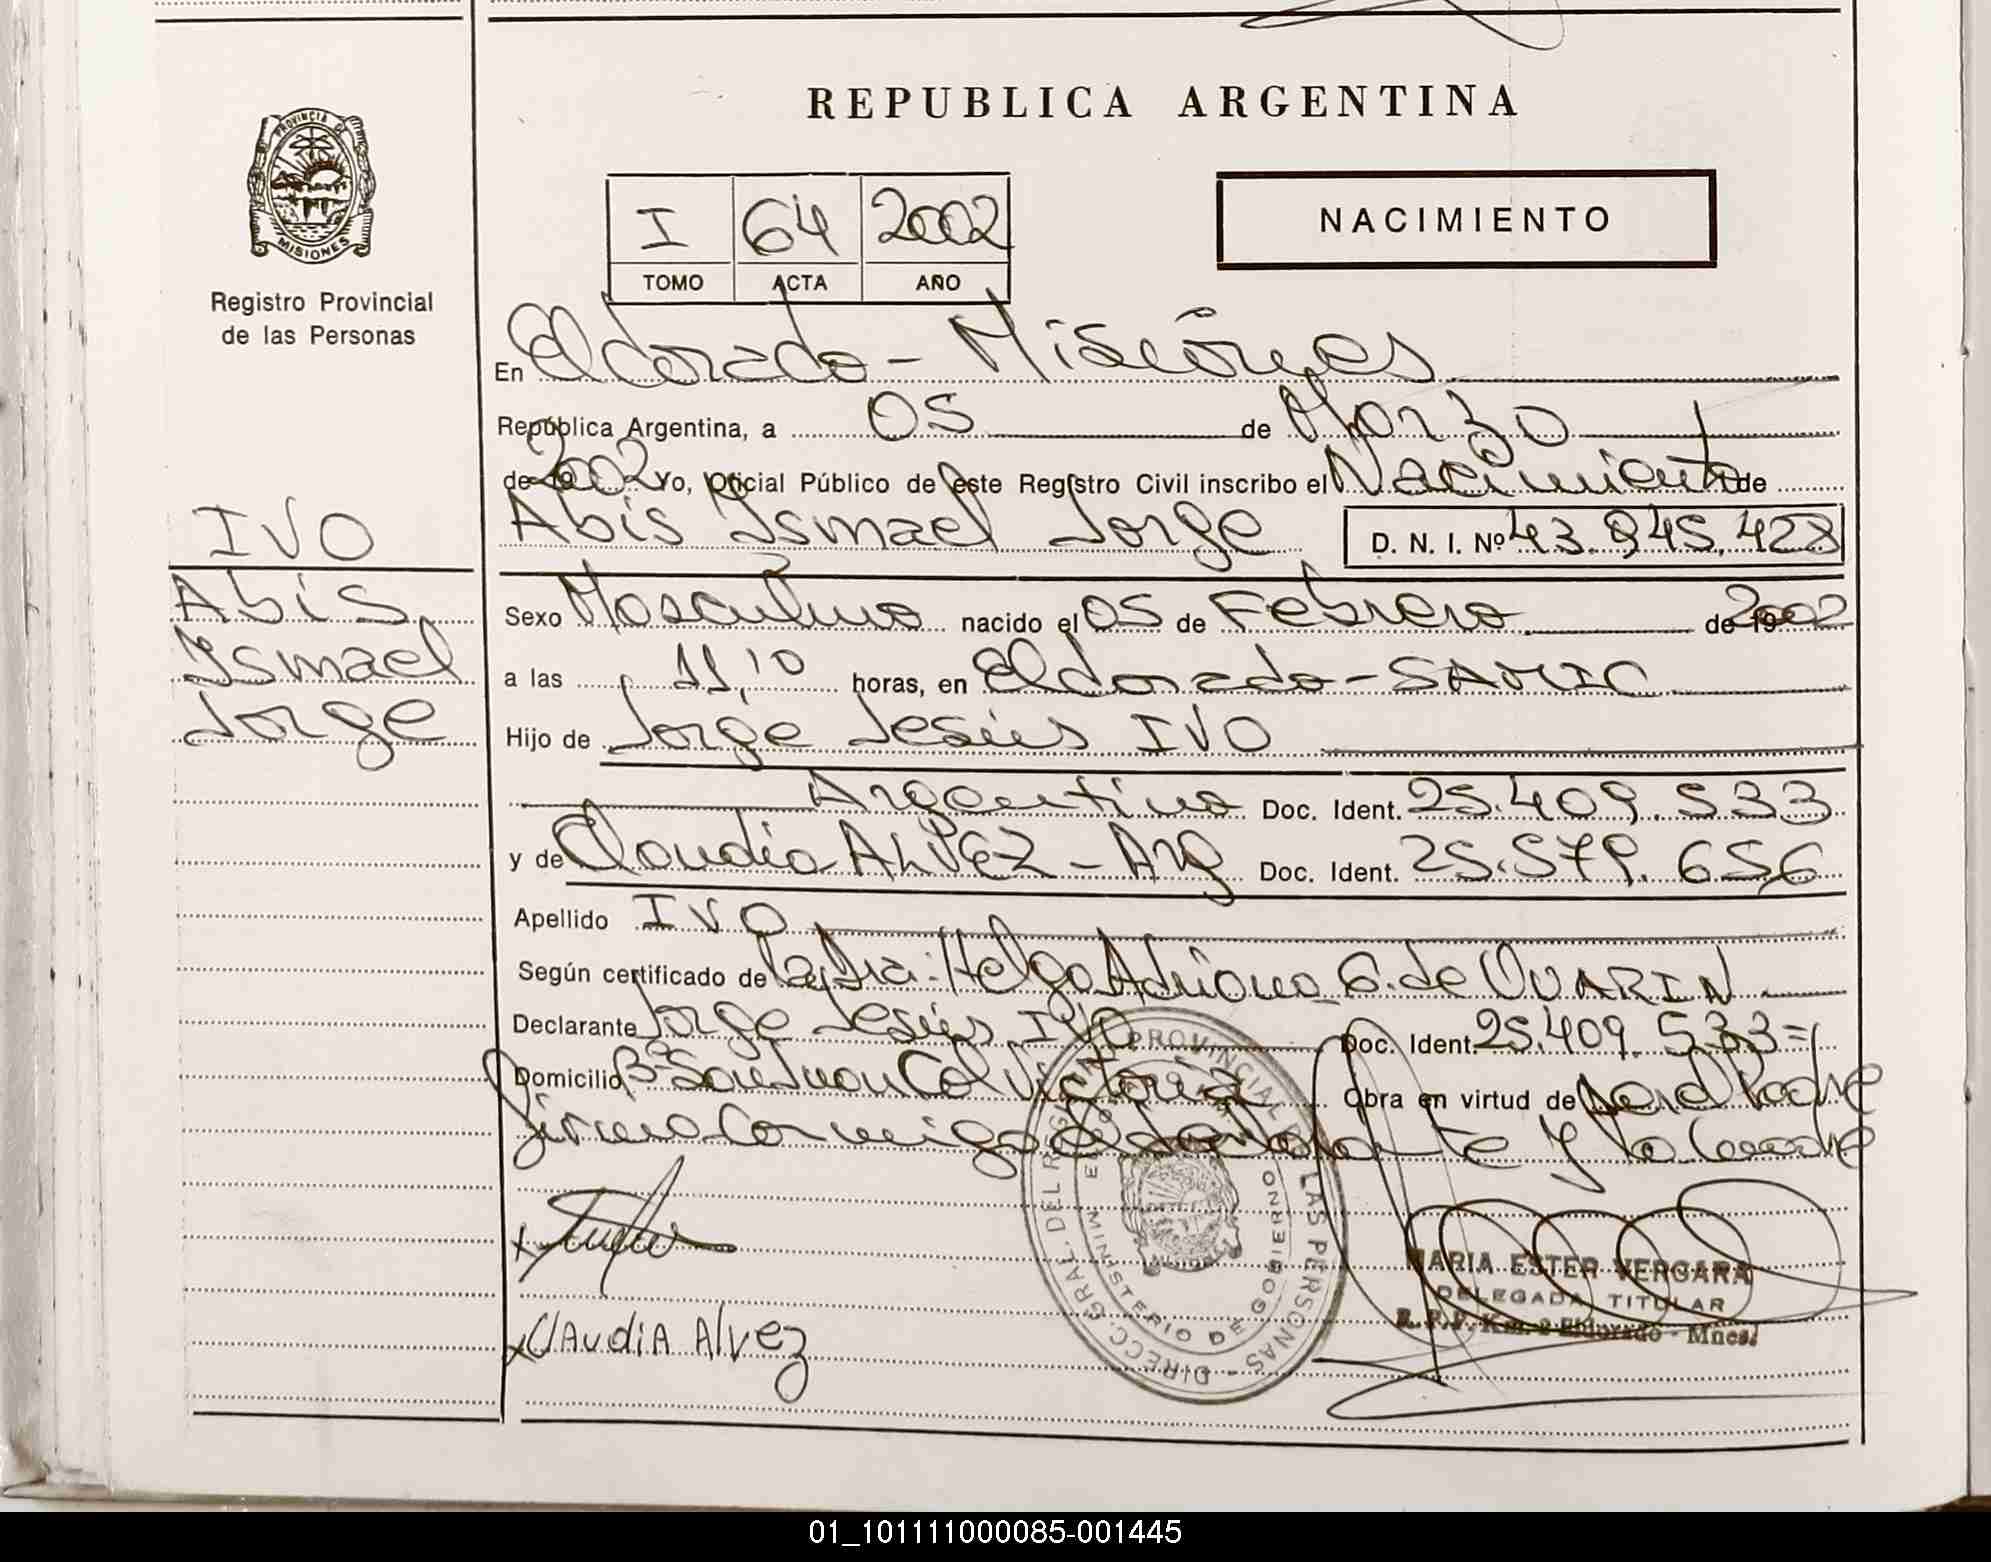 REPUBLICA ARGENTINA
PROVINCIA DE
MISIONES
Registro Provincial
de las Personas
I 64 2002
TOMO ACTA AÑO
NACIMIENTO
En Eldorado - Misiones
República Argentina, a 05 de Marzo
de 19 2002 Yo, Oficial Público de este Registro Civil inscribo el Nacimiento de
Abis Ismael Jorge D. N. I. Nº 43.845.428
IVO
Abis
Ismael
Jorge
Sexo Masculino nacido el 05 de Febrero de 19 2002
a las 11,10 horas, en Eldorado - SAMIC
Hijo de Jorge Jesús IVO
Argentino Doc. Ident. 25.409.533
y de Claudia ALVEZ - Arg Doc. Ident. 25.579.656
Apellido IVO
Según certificado de la Dra. Helga Adriana G. de OVARIN
Declarante Jorge Jesús IVO Doc. Ident. 25.409.533=
Domicilio Bº San Juan Col Victoria Obra en virtud de ser el Padre
firma conmigo el declarante y la madre
DIRECC. GRAL. DEL REGISTRO PROVINCIAL DE LAS PERSONAS -
MINISTERIO DE GOBIERNO
MARIA ESTER VERGARA
DELEGADA TITULAR
R. P. P. Km. 2 Eldorado - Mnes.
x
x CLAudiA Alvez
01_101111000085-001445